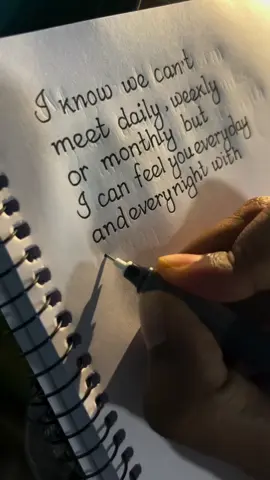 I know we can't
meet daily, weekly
or monthly but
I can feel you everyday
and every night with